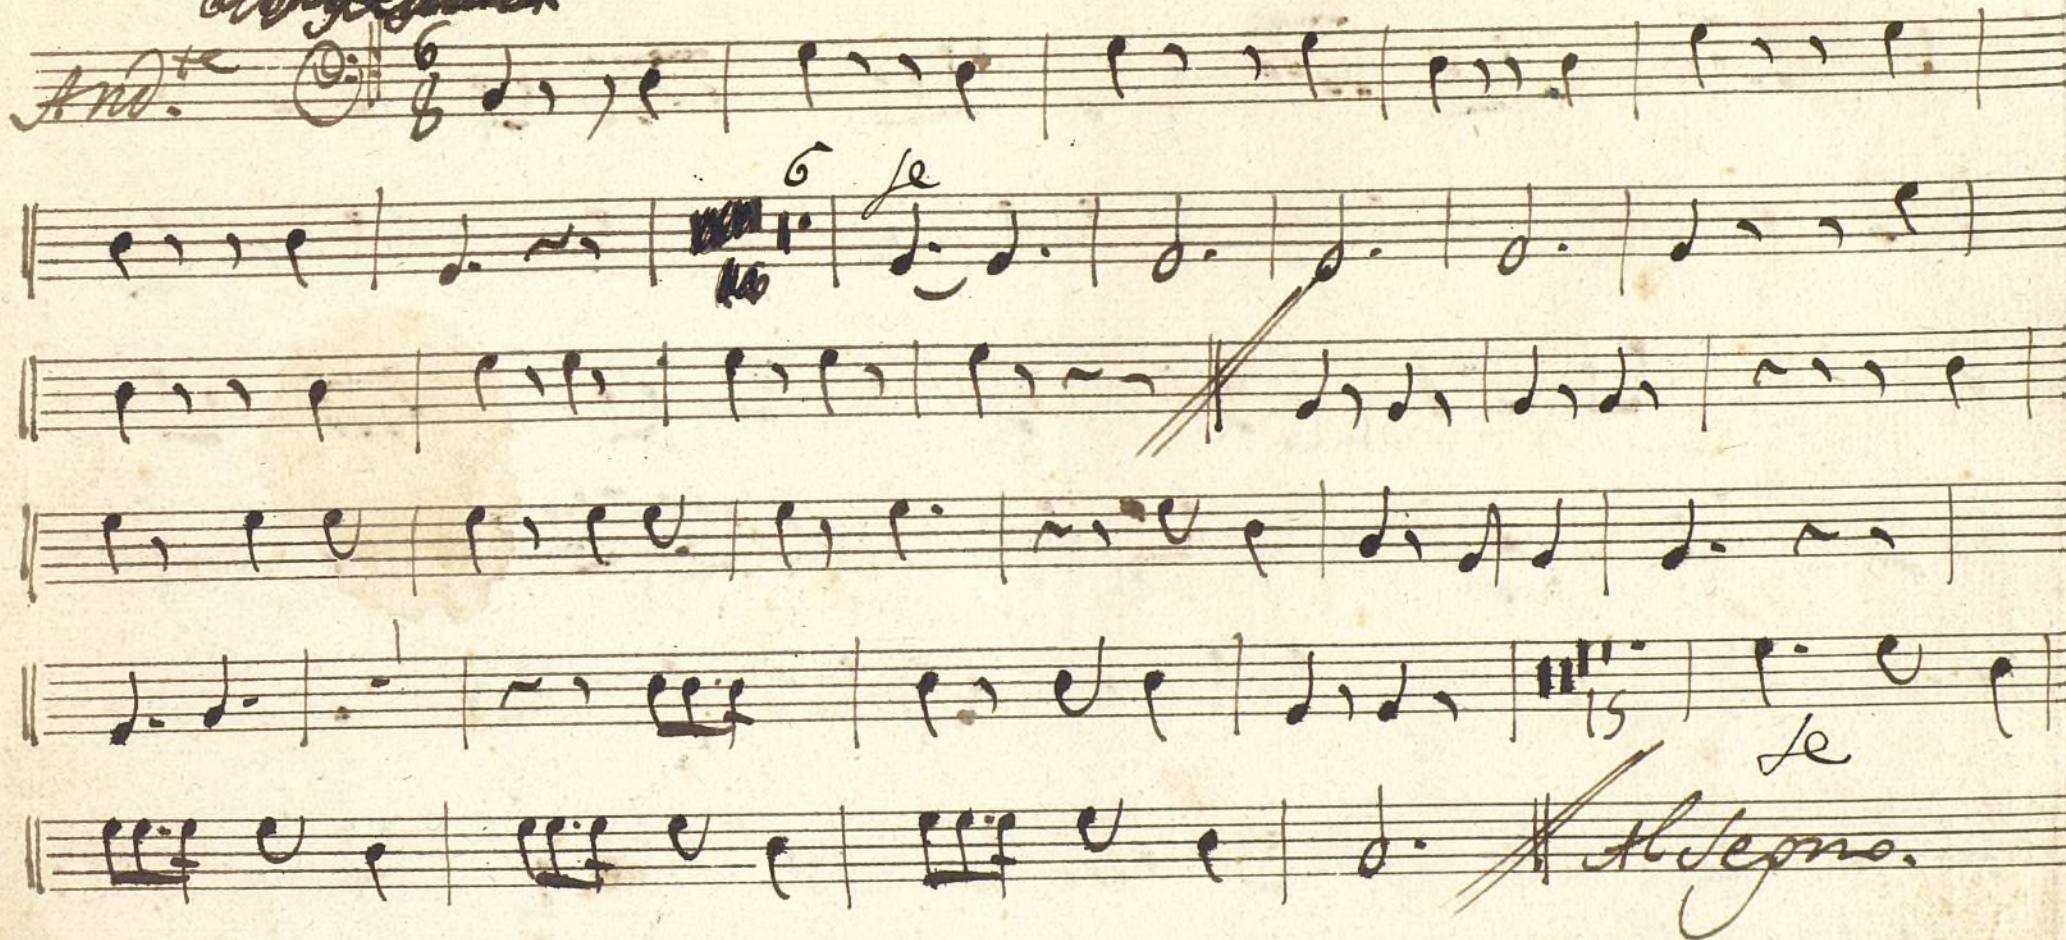 And.te 6 8
6 fe
15
fe
Al Segno.